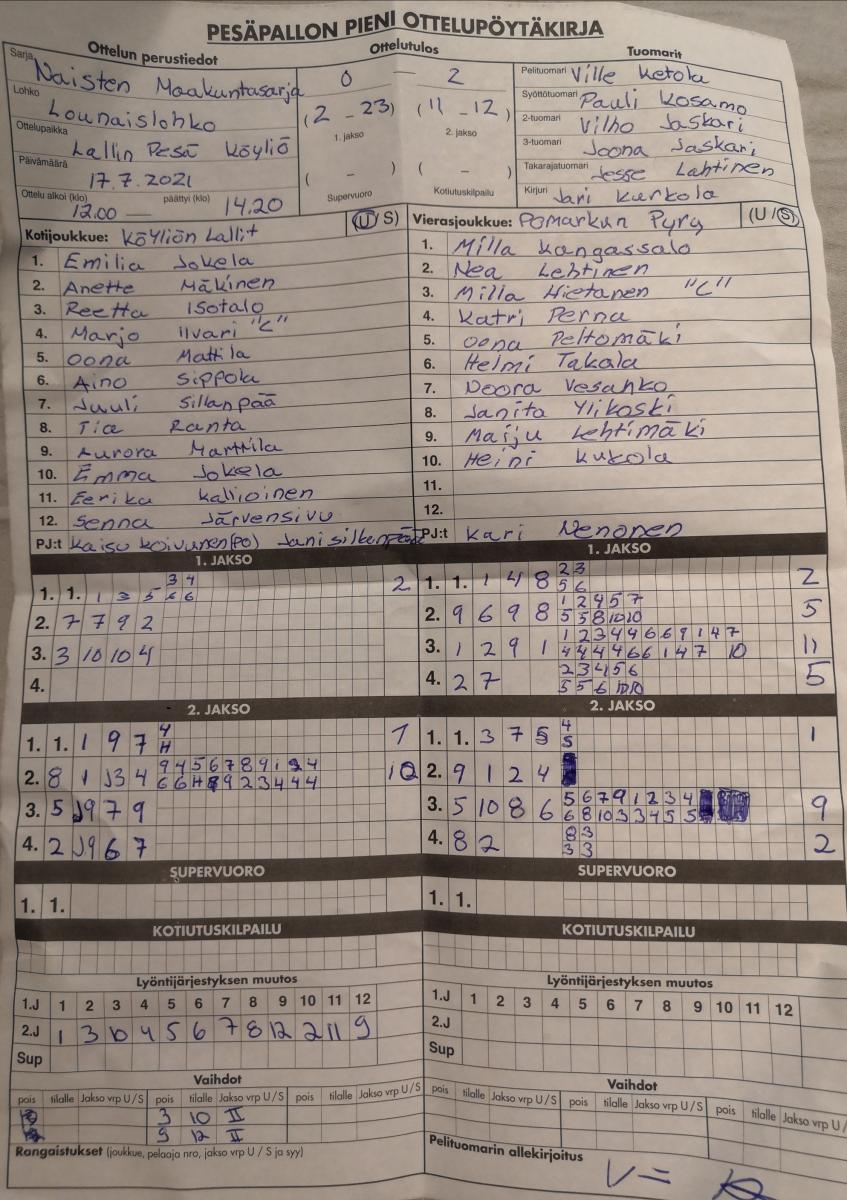 PESÄPALLON PIENI OTTELUPÖYTÄKIRJA
Ottelun perustiedot
Sarja Naisten Maakuntasarja
Lohko Lounaislohko
Ottelupaikka Lallin Pesä Köyliö
Päivämäärä 17.7.2021
Ottelu alkoi (klo) 12.00 — päättyi (klo) 14.20
Ottelutulos
0 — 2
(2 - 23) (11 - 12)
1. jakso 2. jakso
( - ) ( - )
Supervuoro Kotiutuskilpailu
Tuomarit
Pelituomari Ville Ketola
Syöttötuomari Pauli Kosamo
2-tuomari Vilho Jaskari
3-tuomari Joona Jaskari
Takarajatuomari Jesse Lahtinen
Kirjuri Jari Kurkola
Kotijoukkue: Köyliön Lallit (U / S)
1. Emilia Jokela
2. Anette Mäkinen
3. Reetta Isotalo
4. Marjo Ilvari "C"
5. Oona Mattila
6. Aino Sippola
7. Juuli Sillanpää
8. Tia Ranta
9. Aurora Marttila
10. Emma Jokela
11. Eerika Kallioinen
12. Senna Järvensivu
PJ:t Kaisu Koivunen(po) Jani Sillanpää
Vierasjoukkue: Pomarkun Pyry (U / S)
1. Milla Kangassalo
2. Nea Lehtinen
3. Milla Hietanen "C"
4. Katri Perna
5. Oona Peltomäki
6. Helmi Takala
7. Noora Vesanko
8. Janita Ylikoski
9. Maiju Lehtimäki
10. Heini Kukola
11.
12.
PJ:t Kari Nenonen
1. JAKSO
3 4
1. 1. 1 3 5 6 6 2
2. 7 7 9 2
3. 3 10 10 4
4.
2. JAKSO
4
1. 1. 1 9 7 H 1
9 4 5 6 7 8 9 1 2 4
2. 8 1 J3 4 6 6 H 8 9 2 3 4 4 4 10
3. 5 J9 7 9
4. 2 J9 6 7
SUPERVUORO
1. 1.
KOTIUTUSKILPAILU
Lyöntijärjestyksen muutos
1.J 1 2 3 4 5 6 7 8 9 10 11 12
2.J 1 3 10 4 5 6 7 8 12 2 11 9
Sup
Vaihdot
pois tilalle Jakso vrp U / S pois tilalle Jakso vrp U / S pois tilalle Jakso vrp U / S
3 10 II
9 12 II
Rangaistukset (joukkue, pelaaja nro, jakso vrp U / S ja syy)
1. JAKSO
2 3
1. 1. 1 4 8 5 6 2
1 2 4 5 7
2. 9 6 9 8 5 5 8 10 10 5
1 2 3 4 4 6 6 9 1 4 7
3. 1 2 9 1 4 4 4 4 6 6 1 4 7 10 11
2 3 4 5 6
4. 2 7 5 5 6 10 10 5
2. JAKSO
4
1. 1. 3 7 5 5 1
2. 9 1 2 4
5 6 7 9 1 2 3 4
3. 5 10 8 6 6 8 10 3 3 4 5 5 9
8 3
4. 8 2 3 3 2
SUPERVUORO
1. 1.
KOTIUTUSKILPAILU
Lyöntijärjestyksen muutos
1.J 1 2 3 4 5 6 7 8 9 10 11 12
2.J
Sup
Vaihdot
pois tilalle Jakso vrp U / S pois tilalle Jakso vrp U / S pois tilalle Jakso vrp U /
Pelituomarin allekirjoitus